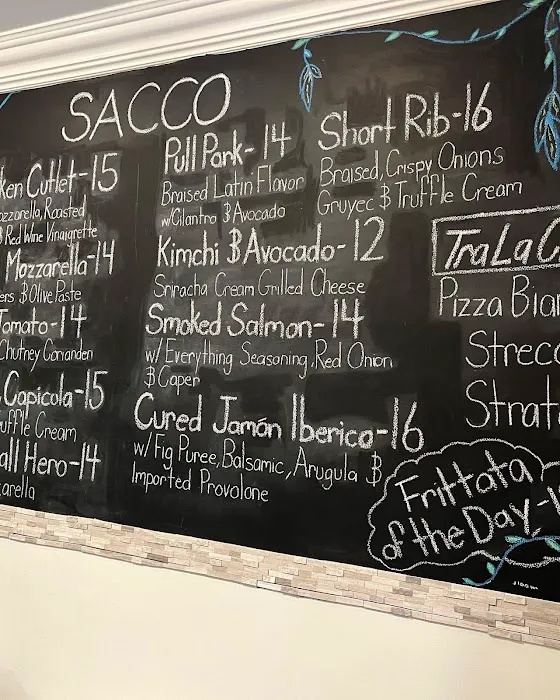 SACCO
Cutlet-15
Mozzarella, Roasted
$ Red Wine Vinaigrette
Mozzarella-14
$ Olive Paste
Tomato-14
Chutney Coriander
Capicola-15
Truffle Cream
Hero-14
Pull Pork-14
Braised Latin Flavor
w/Cilantro $ Avocado
Kimchi $ Avocado-12
Sriracha Cream Grilled Cheese
Smoked Salmon-14
w/Everything Seasoning, Red Onion
$ Caper
Cured Jamón Iberico-16
w/ Fig Puree, Balsamic, Arugula $
Imported Provolone
Short Rib-16
Braised, Crispy Onions
Gruyec $ Truffle Cream
TraLa
Pizza
Frittata
of the Day-